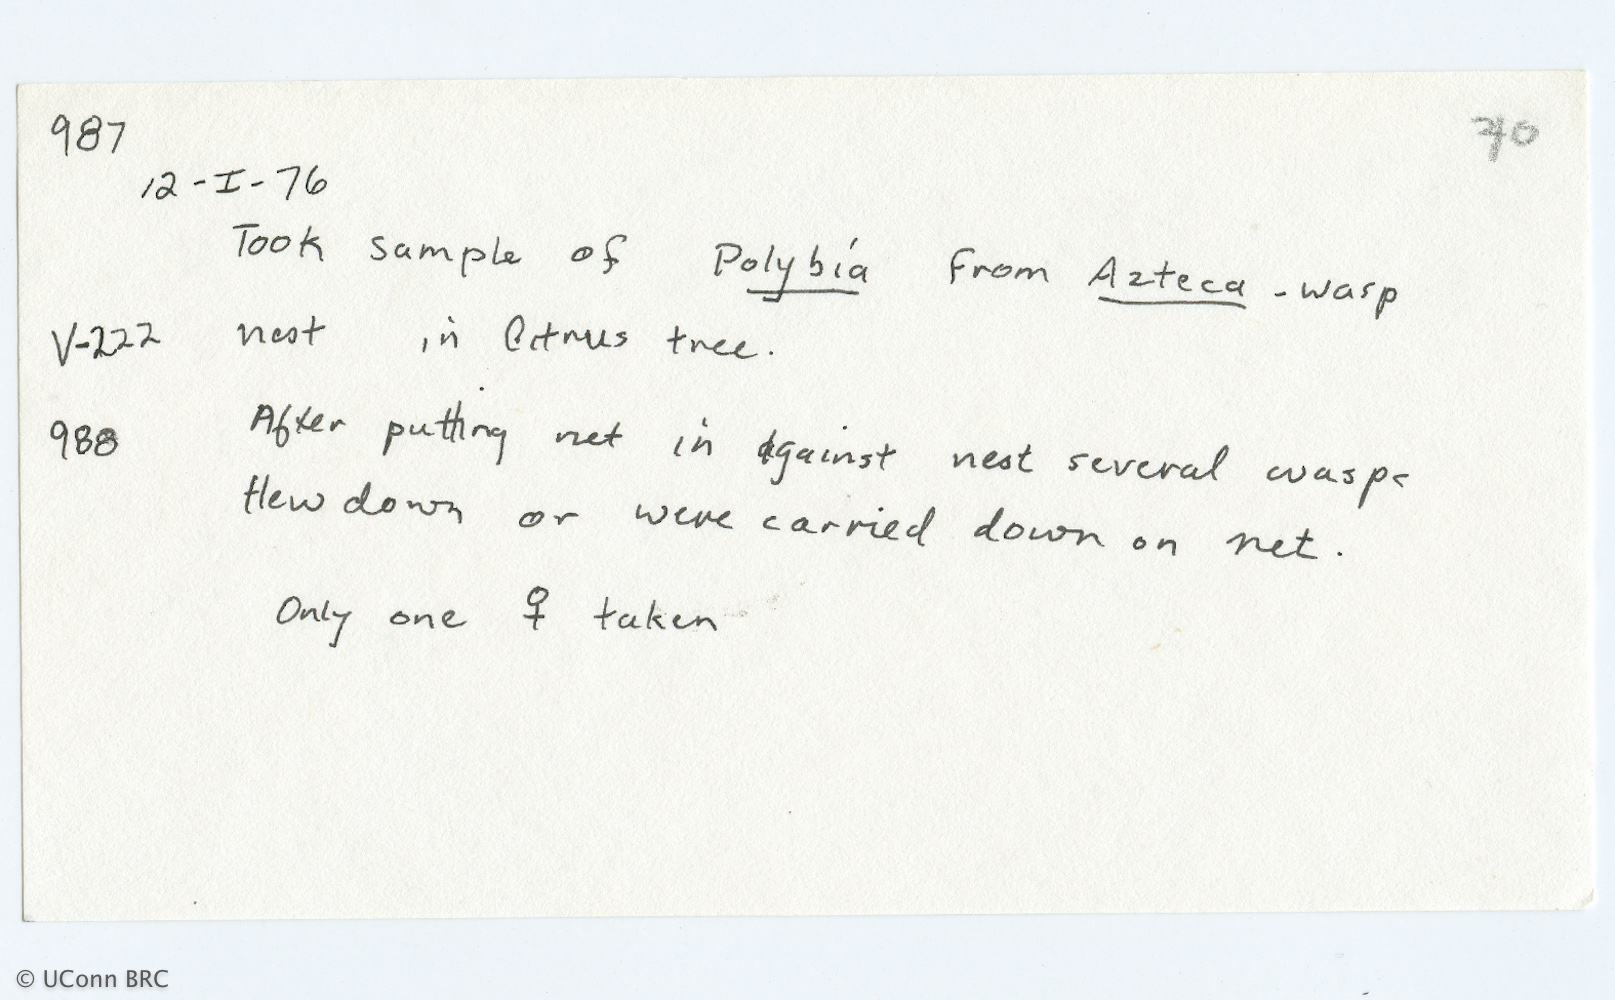 987
70
12-I-76
Took sample of Polybia from Azteca - wasp
V-222 nest in Citrus tree.
988 After putting net in against nest several wasps
flew down or were carried down on net.
Only one ♀ taken
© UConn BRC